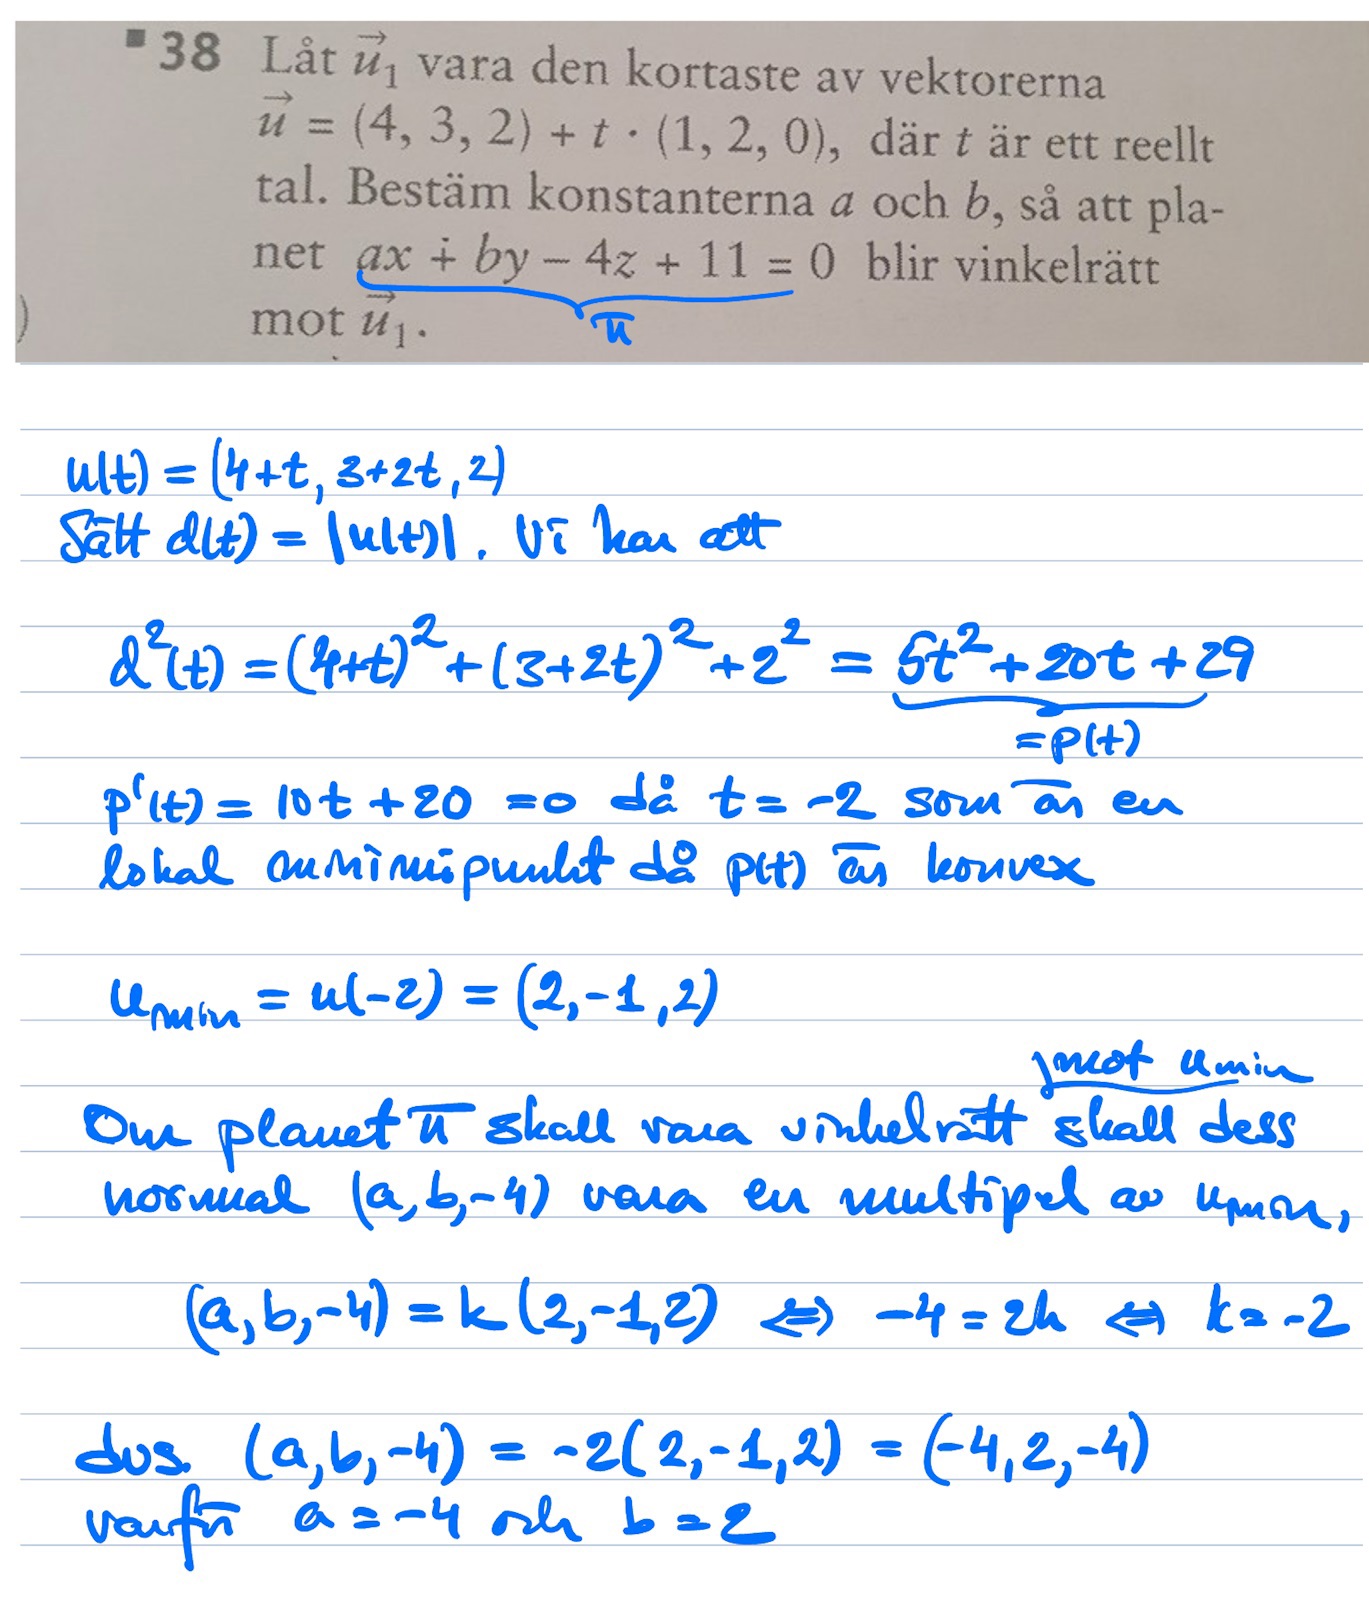 38 Låt u⃗₁ vara den kortaste av vektorerna
u⃗ = (4, 3, 2) + t · (1, 2, 0), där t är ett reellt
tal. Bestäm konstanterna a och b, så att pla-
net ax + by – 4z + 11 = 0 blir vinkelrätt
mot u⃗₁.
π
u(t) = (4+t, 3+2t, 2)
Sätt d(t) = |u(t)|. Vi har att
d²(t) = (4+t)² + (3+2t)² + 2² = 5t² + 20t + 29
= p(t)
p'(t) = 10t + 20 = 0 då t = -2 som är en
lokal minimipunkt då p(t) är konvex
u_min = u(-2) = (2, -1, 2)
mot u_min
Om planet π skall vara vinkelrätt skall dess
normal (a, b, -4) vara en multipel av u_min,
(a, b, -4) = k(2, -1, 2) ⇔ -4 = 2k ⇔ k = -2
dvs. (a, b, -4) = -2(2, -1, 2) = (-4, 2, -4)
varför a = -4 och b = 2